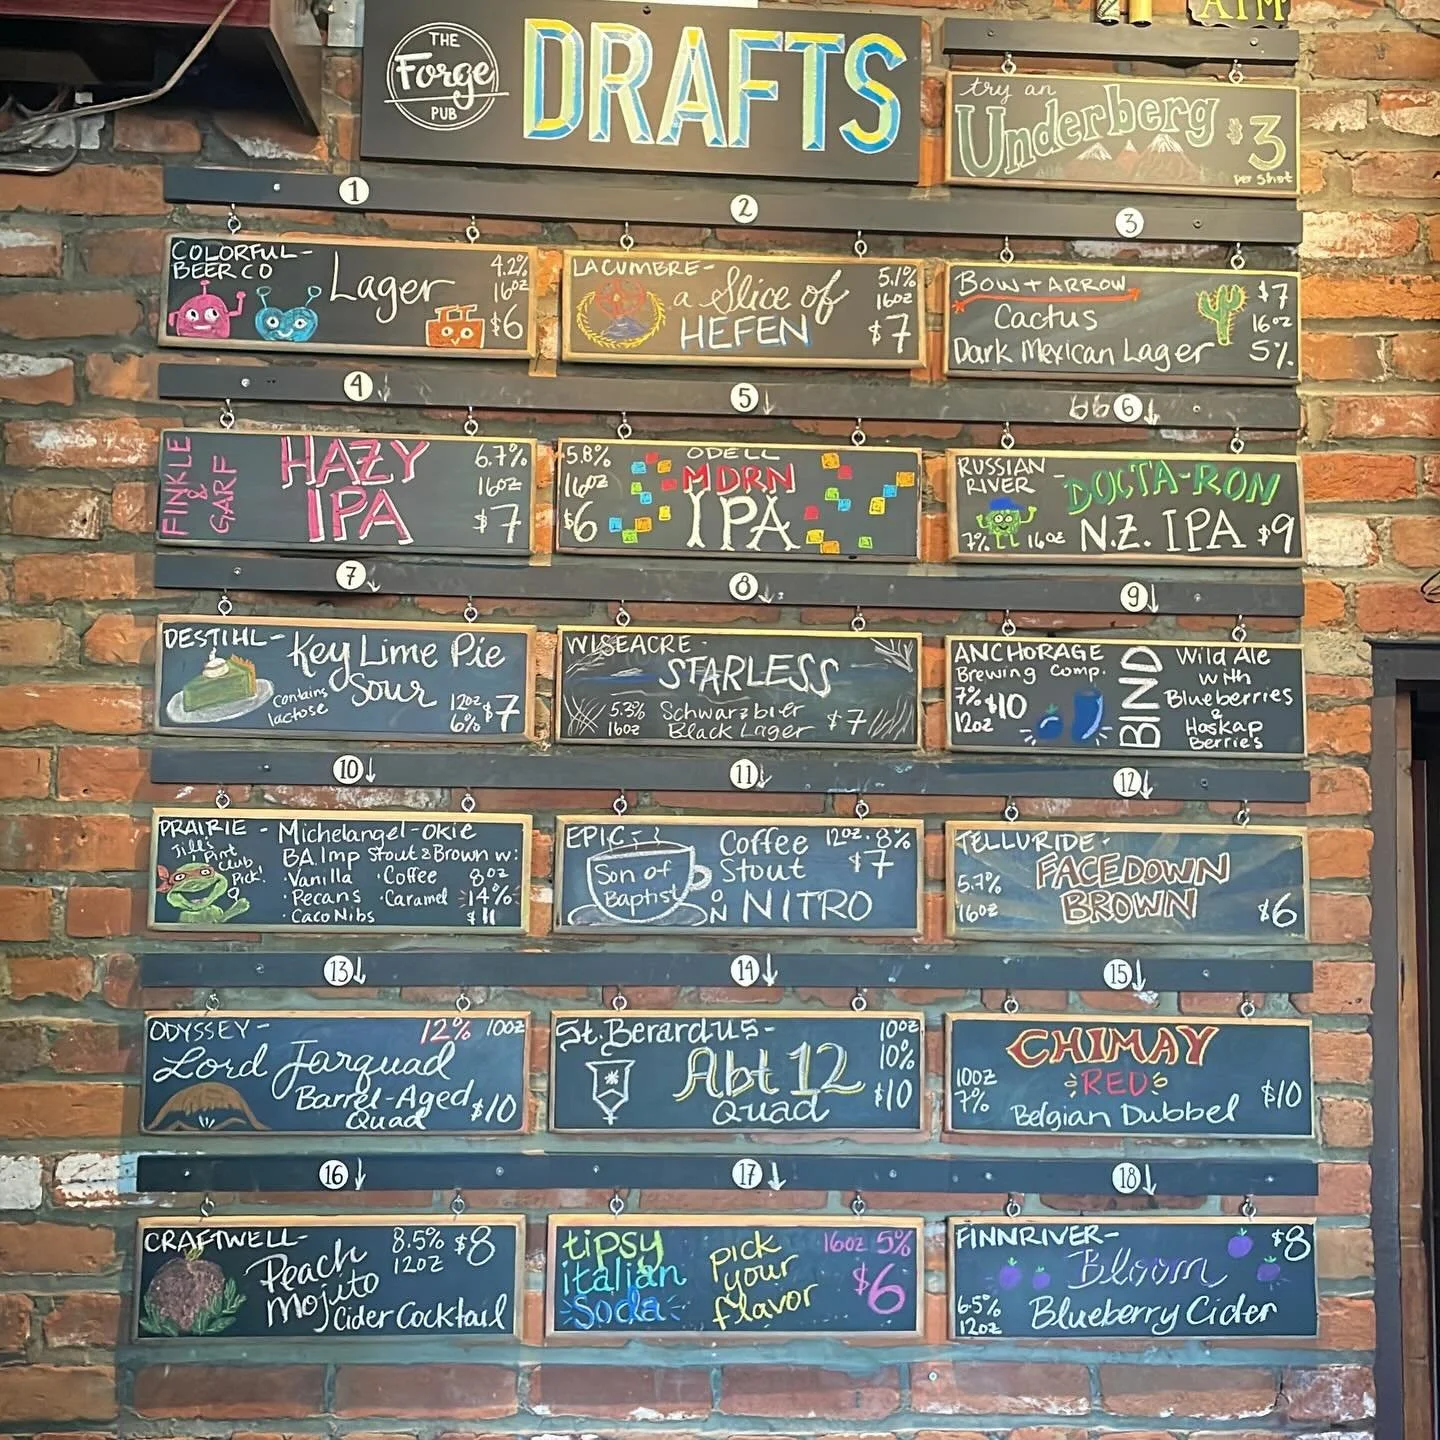 THE
Forge
PUB
DRAFTS
ATM
try an
Underberg
$3
per shot
1
COLORFUL-
BEER CO
Lager
4.2%
16oz
$6
2
LA CUMBRE-
a Slice of
HEFEN
5.1%
16oz
$7
3
BOW + ARROW
Cactus
Dark Mexican Lager
$7
16oz
5%
4
FINKLE
&
GARF
HAZY
IPA
6.7%
16oz
$7
5
5.8%
16oz
$6
ODELL
MDRN
IPA
6
RUSSIAN
RIVER -
DOCTA-RON
N.Z. IPA
7%
16oz
$9
7
DESTIHL-
Key Lime Pie
Sour
contains
lactose
12oz
6%
$7
8
WISEACRE-
STARLESS
5.3%
16oz
Schwarzbier
Black Lager
$7
9
ANCHORAGE
Brewing Comp.
7% $10
12oz
BIND
Wild Ale
with
Blueberries
&
Haskap
Berries
10
PRAIRIE - Michelangel-okie
Jill's
Pint
Club
Pick!
BA. Imp Stout & Brown w:
·Vanilla ·Coffee
·Pecans ·Caramel
·Caco Nibs
8oz
14%
$11
11
EPIC-
Son of
Baptist
Coffee
Stout
ON NITRO
12oz. 8%
$7
12
TELLURIDE-
FACEDOWN
BROWN
5.7%
16oz
$6
13
ODYSSEY-
12% 10oz
Lord Farquad
Barrel-Aged
Quad
$10
14
St. Berardus-
Abt 12
Quad
10oz
10%
$10
15
CHIMAY
RED
Belgian Dubbel
10oz
7%
$10
16
CRAFTWELL-
Peach
Mojito
Cider Cocktail
8.5% $8
12oz
17
tipsy
italian
Soda
pick
your
flavor
16oz 5%
$6
18
FINNRIVER-
Bloom
Blueberry Cider
6.5%
12oz
$8